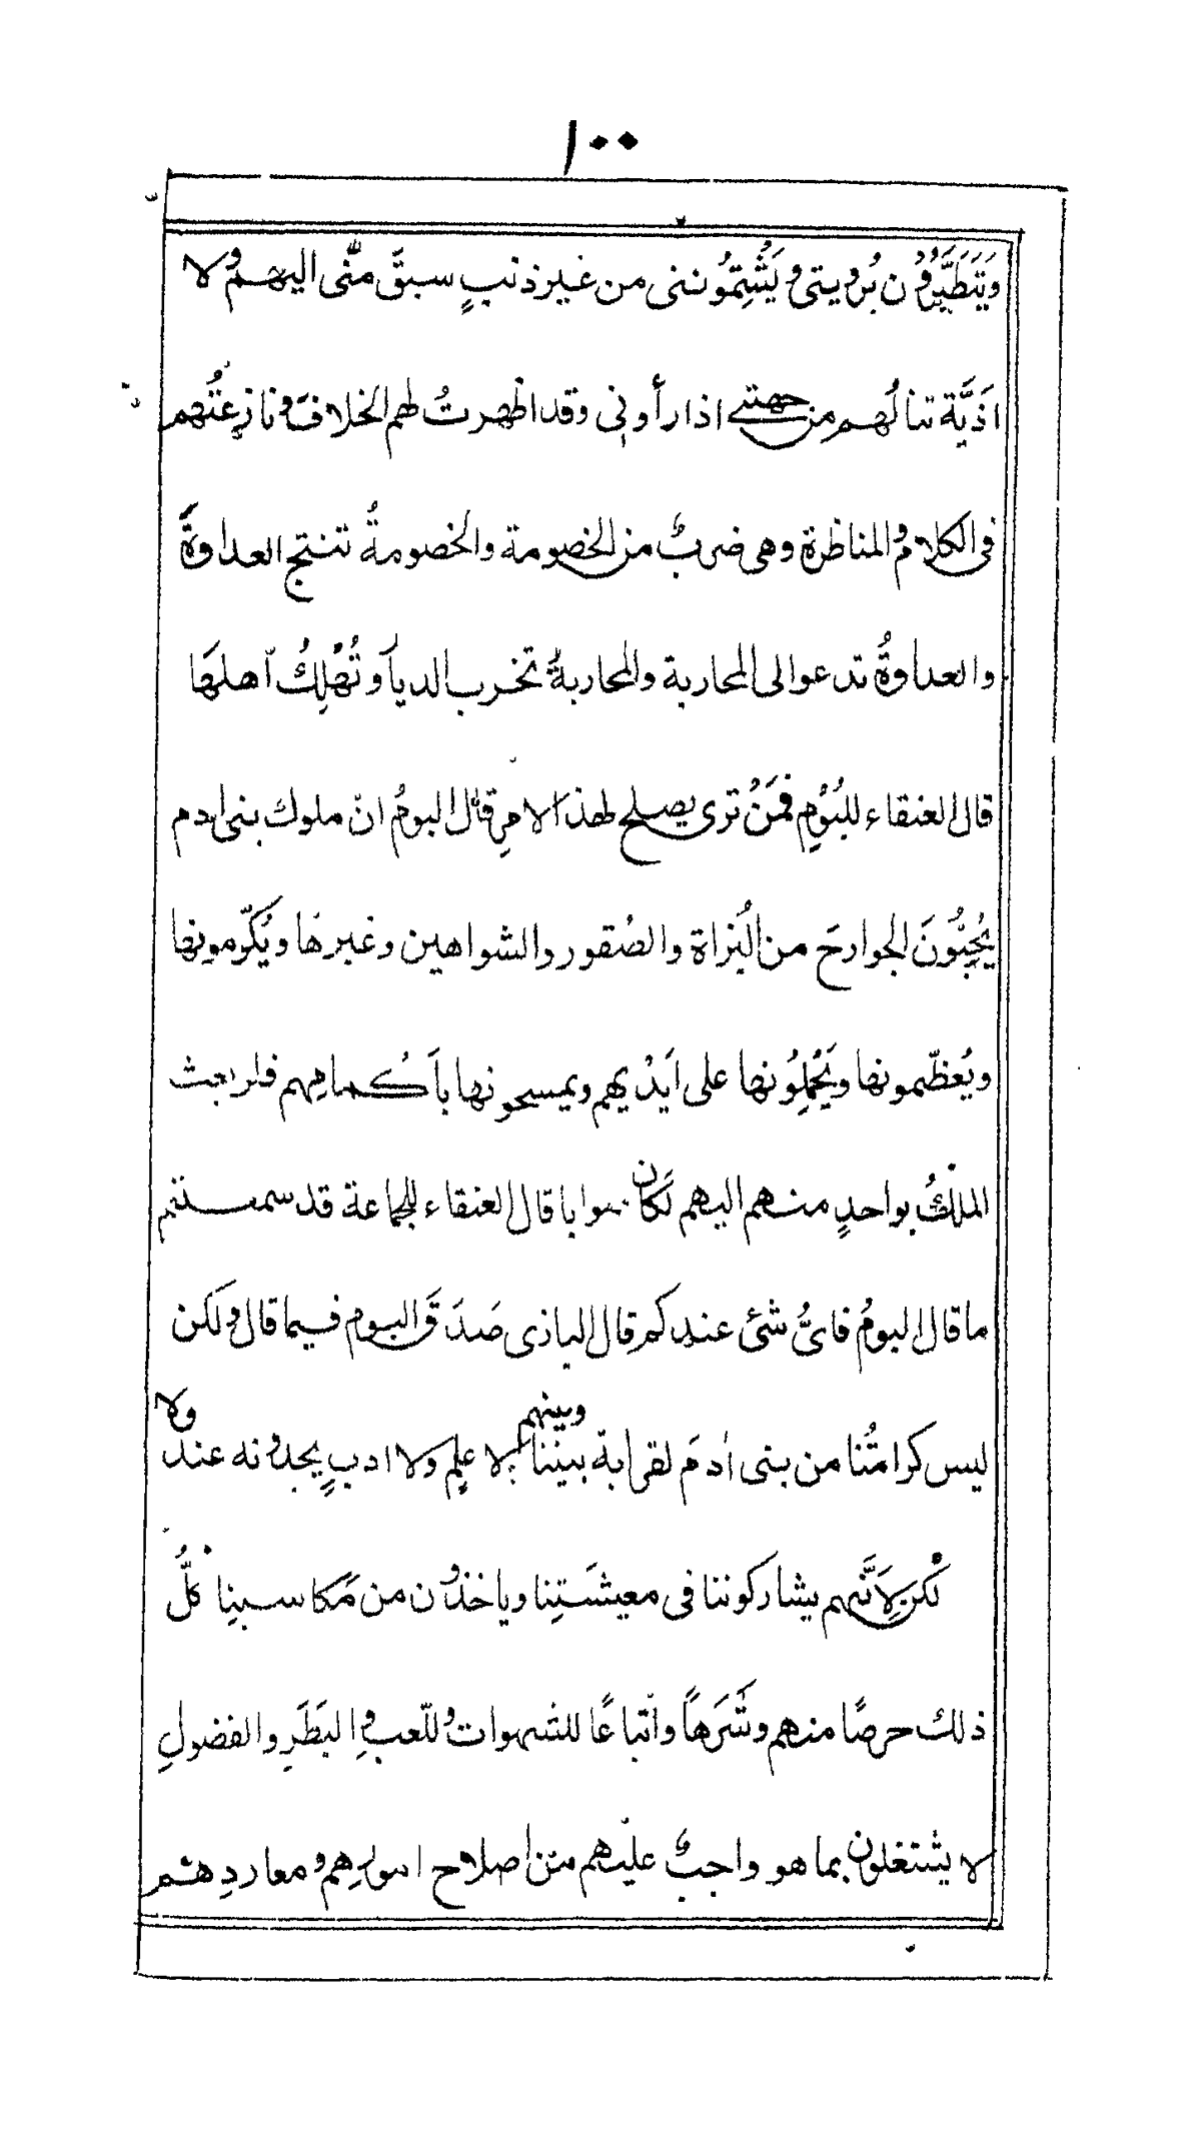 ١٠٠
وَيَتَطَيَّرُوُن بُرويتى و يَشُتِمُوننى من غيرذنبٍ سبقَّ منّى اليهم ولا
اَذيَّة تنالُهم من جهتے اذا رأونى وقد اظهرتُ لهم الخلافَ و نازعتُهم
فى الكلام والمناظرة وهى ضربٌ من الخصومة والخصومةُ تنتج العداوةَ
والعداوةُ تدعوا الى المحاربة والمحاربةُ تخرب الدياَ وتُهْلِكُ اهلهَا
قال العنقاء للبُوْمِ فمَنْ ترى يصلح لهذ الامرِ قال البومُ انّ ملوك بنى ادم
يُحِبُّونَ الجوارحَ من البُزاة والصُقور والشواهين وغيرهَا ويُكرّمونها
ويُعظّمونها ويَحْمِلُونها على اَيَدْيهم ويمسحونها باَكُماهِهم فلو بعث
الملكُ بواحدٍ منهم اليهم لَكان صوابا قال العنقاء للجماعة قد سمعتم
ما قال البومُ فاىُّ شئ عندكم قال البازى صَدَقَ البوم فيما قال ولكن
ليس كرامتُنا من بنى اٰدمَ لقرابة بيننا وبينهم ولا علمٍ ولا ادبٍ يجدونه عند
لكن لِاَنَّهم يشاركوننا فى معيشَتِنا وياخذون من مَكاسبنِا كلُّ
ذلك حرصًا منهم وشَرَهاً واتّباعًا للشهوات وللّعب والبَطَرِ والفضولِ
لا يشتغلون بما هو واجبٌ عليهم من اصلاح امورهم ومعادهم